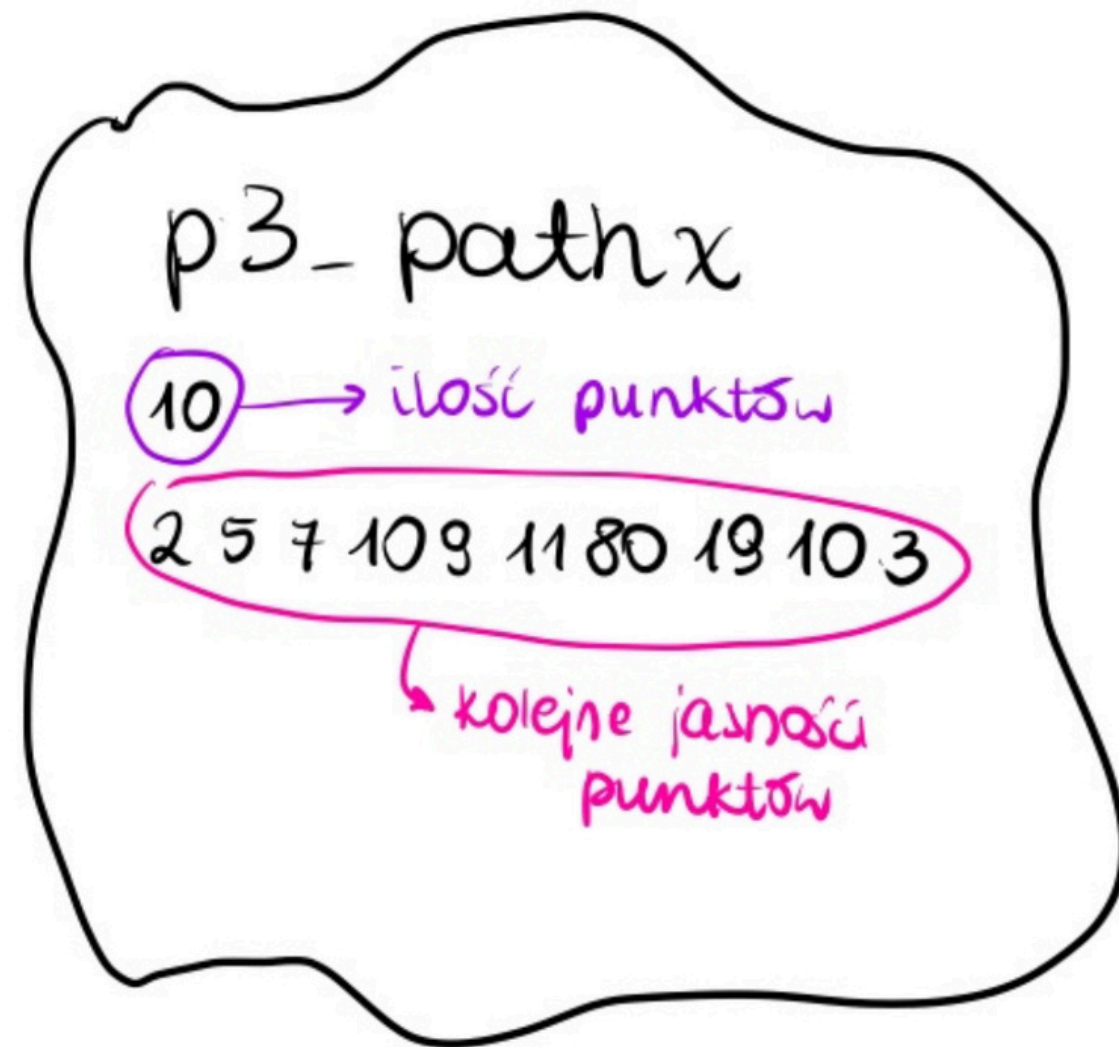 p3_pathx
10 → ilość punktów
2 5 7 10 9 11 80 19 10 3
kolejne jasności
punktów